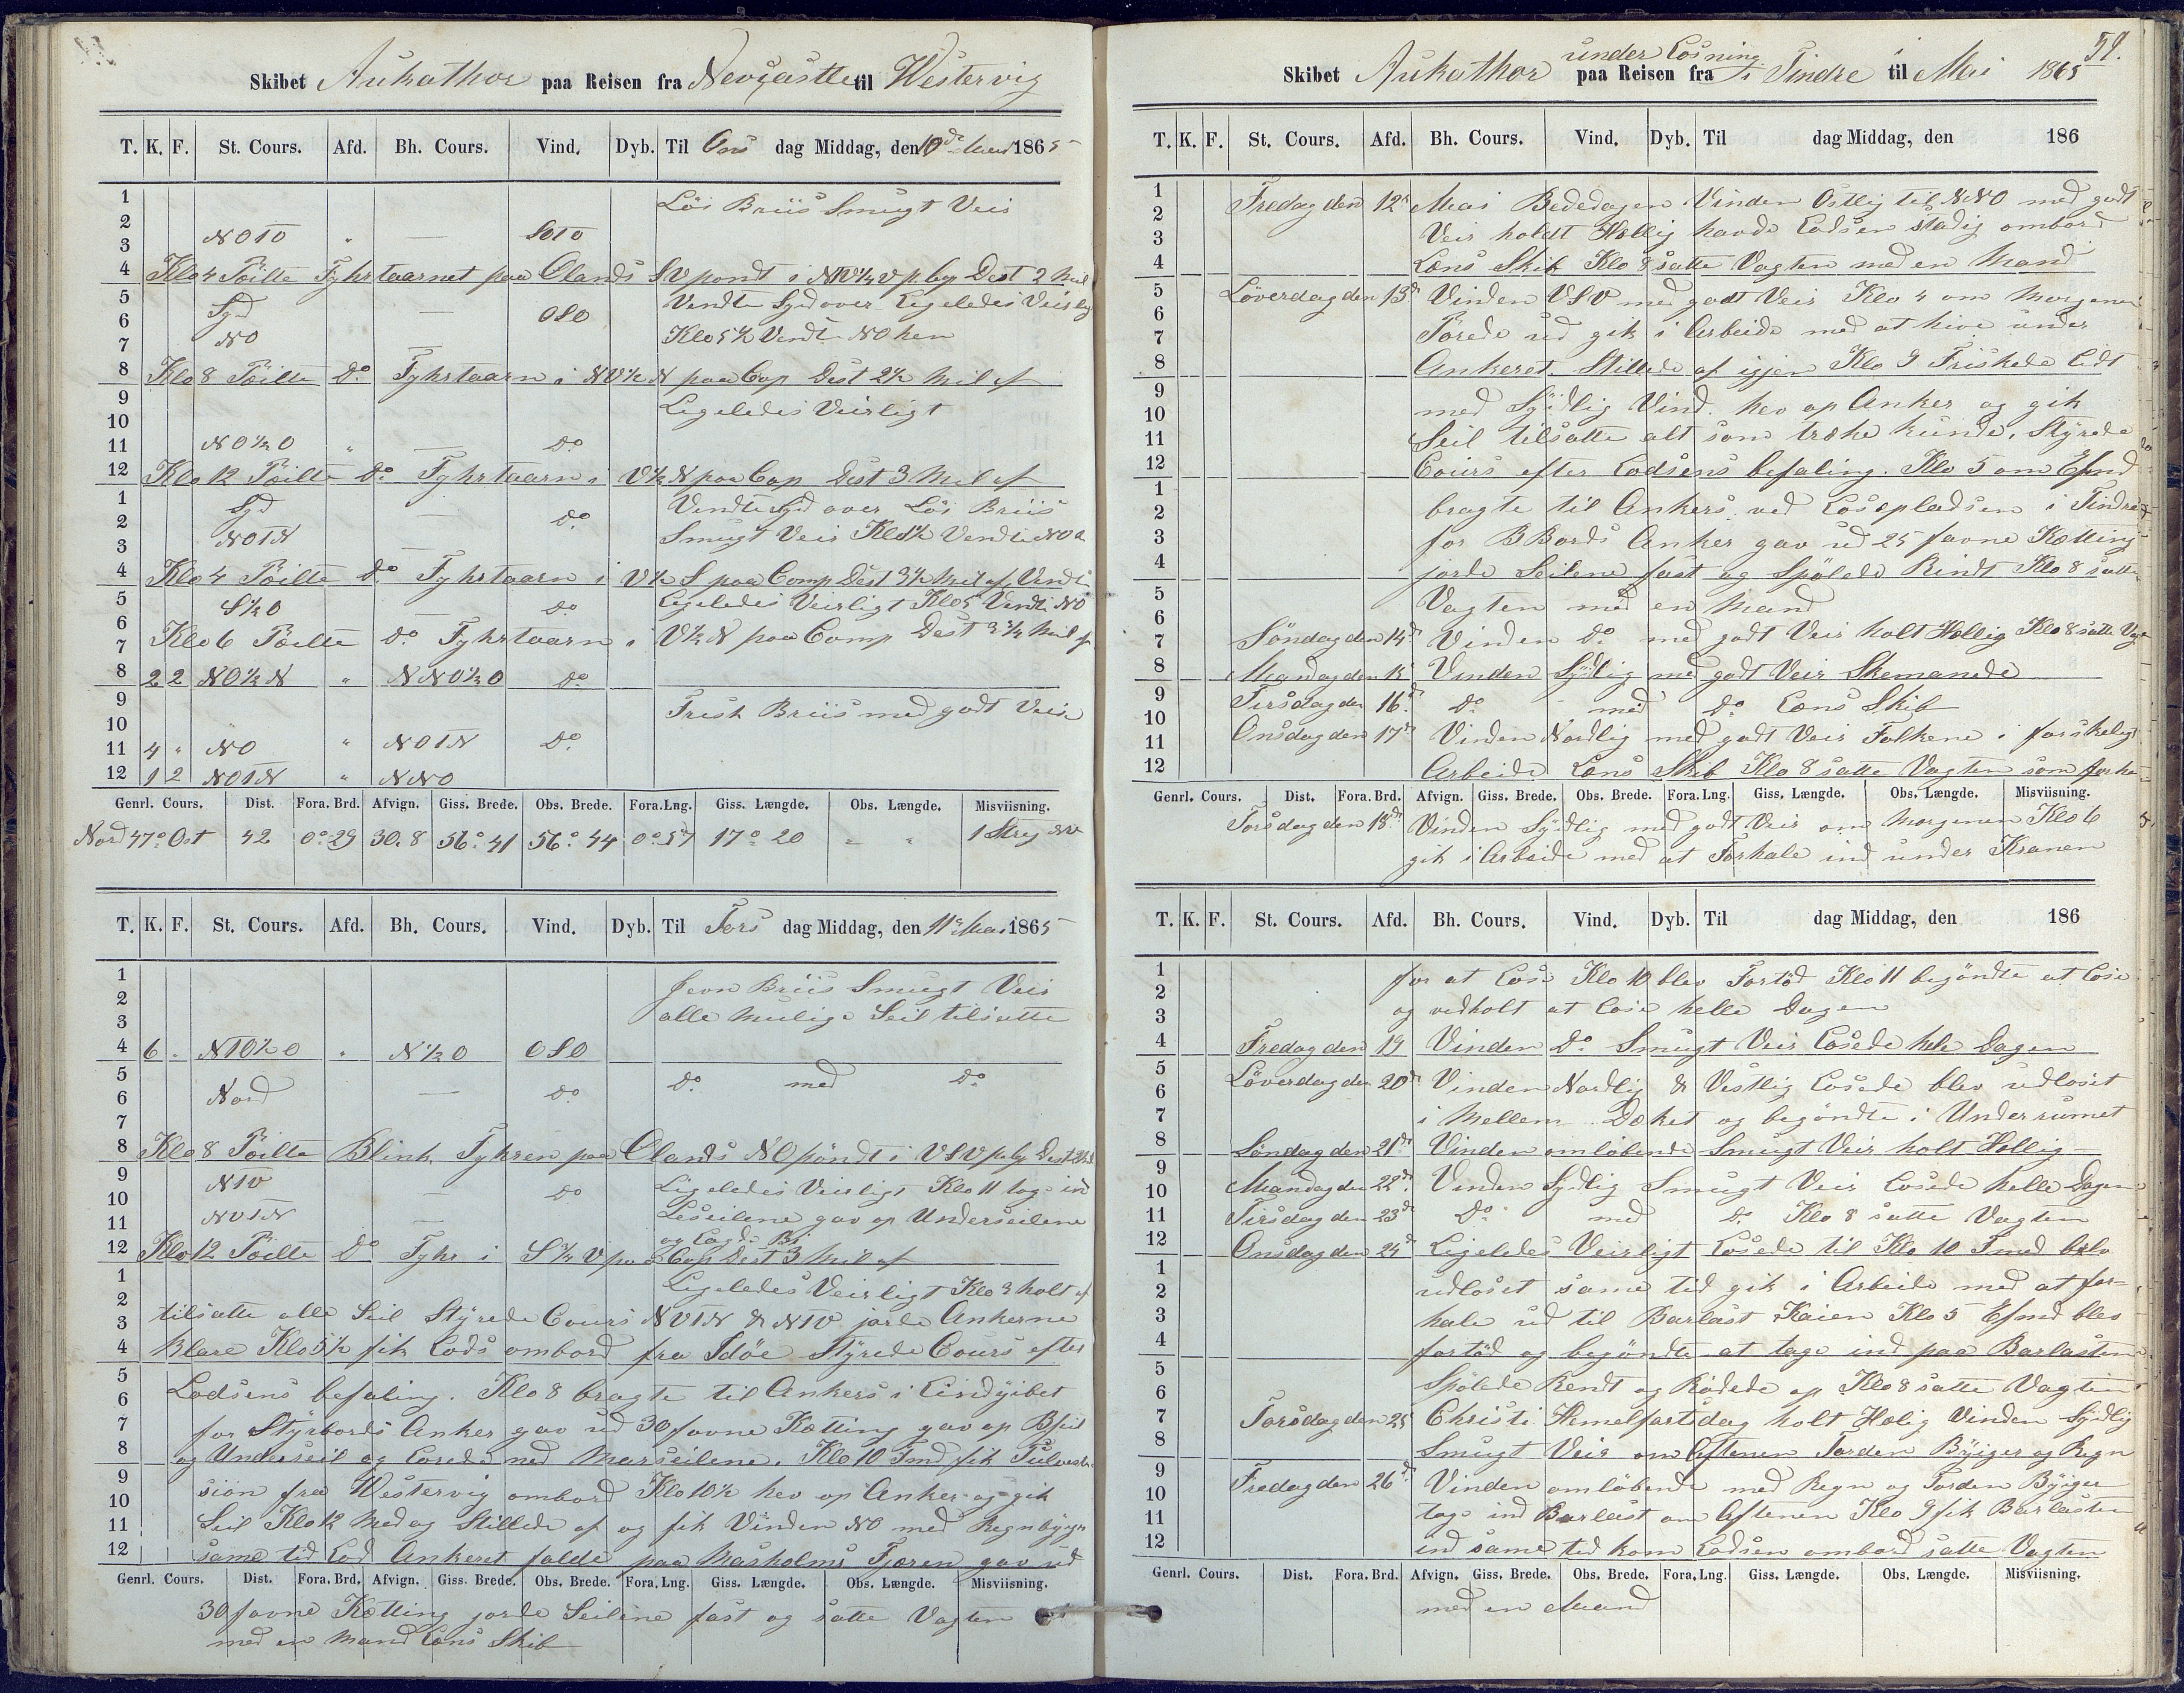 Skibet Aukathor paa Reisen fra Newcastle til Westervig
T. K. F. St. Cours. Afd. Bh. Cours. Vind. Dyb. Til Ons dag Middag, den 10de Mai 1865
1 Lös Briis Smugt Veir
2
3 NOTO " — SOTO
4 Klo 4 Pöilte Fyhrtaarnet paa Olands SV pondt i NV½V p. Cop Dest 2 Mil
5 Syd — OSO Vendte Syd over Ligeledes Veirlig
6
7 NO — Klo 5½ Vendte NO hen
8 Klo 8 Pöilte Do Fyhrtaarn i NV½N paa Cop Dest 2½ Mil af
9 Ligeledes Veirligt
10
11 NO½O " — Do
12 Klo 12 Pöilte Do Fyhrtaarn i V½N paa Cop Dest 3 Mil af
1 Syd — Do Vendte Syd over Lös Briis
2 Smugt Veir Klo 1½ Vendte NO
3 NOTN —
4 Klo 4 Pöilte Do Fyhrtaarn i V½S paa Comp Dest 3½ Mil af Vendte
5 S½O — Do Ligeledes Veirligt Klo 5 Vendte NO
6
7 Klo 6 Pöilte Do Fyhrtaarn i V½N paa Comp Dest 3¾ Mil af
8 2 2 NO½N " NNO½O Do
9 Frisk Briis med godt Veir
10
11 4 " NO " NOTN Do
12 1 2 NOTN " NNO
Genrl. Cours. Dist. Fora. Brd. Afvign. Giss. Brede. Obs. Brede. Fora. Lng. Giss. Længde. Obs. Længde. Misviisning.
Nord 47° Ost 42 0°29 30.8 56°41 56°44 0°57 17°20 " " 1 Streg NV
T. K. F. St. Cours. Afd. Bh. Cours. Vind. Dyb. Til Tors dag Middag, den 11te Mai 1865
1 Jevn Briis Smugt Veir
2 alle Mulige Seil tilsatte
3
4 6 " NTO½O " N½O OSO
5 Do med Do
6 Nord — Do
7
8 Klo 8 Pöilte Blink Fyhren paa Olands NO pöndt i VSV p. Cop Dest
9 NTV — Do Ligeledes Veirligt Klo 11 tog ind
10
11 NVTN — Leseilene gav op Underseilene
og Lagde Bi
12 Klo 12 Pöilte Do Fyhr i S¾V paa Cop Dest 3 Mil af
1 Ligeledes Veirligt Klo 3 holt af
2 tilsatte alle Seil Styrede Cours NVTN & NTV jorde Ankerne
3
4 Klare Klo 5½ fik Lods ombord fra Idöe Styrede Cours efter
5 Lodsens befaling. Klo 8 bragte til Ankers i Lindyibet
6
7 for Styrbords Anker gav ud 30 favne Kætting gav op Bseil
8 og Underseil og Lorede ned Marseilene. Klo 10 Fmd fik
9 siön fra Westervig ombord Klo 10½ hev op Anker og gik
10
11 Seil Klo 12 Medag Stillede af og fik Vinden NO med Regnbyger
12 same tid Lod Ankeret falde paa Masholms Fjæren gav ud
Genrl. Cours. Dist. Fora. Brd. Afvign. Giss. Brede. Obs. Brede. Fora. Lng. Giss. Længde. Obs. Længde. Misviisning.
30 favne Kætting jorde Seilene fast og satte Vagten
med en Mand Læns Skib
59.
Skibet Aukathor under Losning paa Reisen fra i Tindre til Mai 1865
T. K. F. St. Cours. Afd. Bh. Cours. Vind. Dyb. Til dag Middag, den 186
1 Fredag den 12te Mai Bededagen Vinden Ostlig til NNO med godt
2
3 Veir holdt Hellig havde Lodsen stadig ombord
4 Læns Skib Klo 8 satte Vagten med en Mand
5 Löverdag den 13de Vinden VSV med godt Veir Klo 4 om Morgenen
6
7 Törede ud gik i Arbeide med at hive under
8 Ankeret. Stillede af igjen Klo 9 Friskede lidt
9
10 med Sydlig Vind. hev op Anker og gik
11 Seil tilsatte alt som trække kunde. Styrede
12 Cours efter Lodsens befaling. Klo 5 om Efmd
1
2 bragte til Ankers ved Losepladsen i Tindre
3 for B Bords Anker gav ud 25 favne Kætting
4 jorde Seilene fast og Spölede Rindt Klo 8 satte
5 Vagten med en Mand
6
7 Söndag den 14de Vinden Do med godt Veir holt Hellig Klo 8 satte Vagt
8 Mandag den 15 Vinden Sydlig med godt Veir Skemanede
9 Tirsdag den 16de Do med Do Læns Skib
10
11 Onsdag den 17de Vinden Nordlig med godt Veir Folkene i forskeligt
12 Arbeide Læns Skib Klo 8 satte Vagten som för
Genrl. Cours. Dist. Fora. Brd. Afvign. Giss. Brede. Obs. Brede. Fora. Lng. Giss. Længde. Obs. Længde. Misviisning.
Torsdag den 18de Vinden Sydlig med godt Veir om Morgenen Klo 6
gik i Arbeide med at Forhale ind under Kranen
T. K. F. St. Cours. Afd. Bh. Cours. Vind. Dyb. Til dag Middag, den 186
1 for at Lose Klo 10 blev Fortöd Klo 11 begöndte at Lose
2
3 og vedholt at Lose helle Dagen
4 Fredag den 19 Vinden Do Smugt Veir Losede hele Dagen
5 Löverdag den 20de Vinden Nordlig & Vestlig Losede blev udloset
6
7 i Mellem Dæket og begöndte i Underrumet
8 Söndag den 21de Vinden omlöbende Smugt Veir holt Hellig —
9
10 Mandag den 22de Vinden Sydlig Smugt Veir Losede helle Dagen
11 Tirsdag den 23de Do med Do Klo 8 satte Vagten
12 Onsdag den 24de Ligeledes Veirligt Losede til Klo 10 Fmd belv
1
2 udloset same tid gik i Arbeide med at for-
3 hale ud til Barlast Kaien Klo 5 Efmd blev
4 fortöd og begöndte at tage ind paa Barlasten
5
6 Spölede Rendt og Rödede op Klo 8 satte Vagten
7 Torsdag den 25 Christi Hemelfartsdag holt Hælig Vinden Sydlig
8 Smugt Veir om Aftenen Torden Byiger og Regn
9 Fredag den 26de Vinden omlöbende med Regn og Torden Byiger
10
11 tog ind Barlast om Aftenen Klo 9 fik Barlasten
12 ind same tid kom Lodsen ombord satte Vagten
Genrl. Cours. Dist. Fora. Brd. Afvign. Giss. Brede. Obs. Brede. Fora. Lng. Giss. Længde. Obs. Længde. Misviisning.
med en Mand